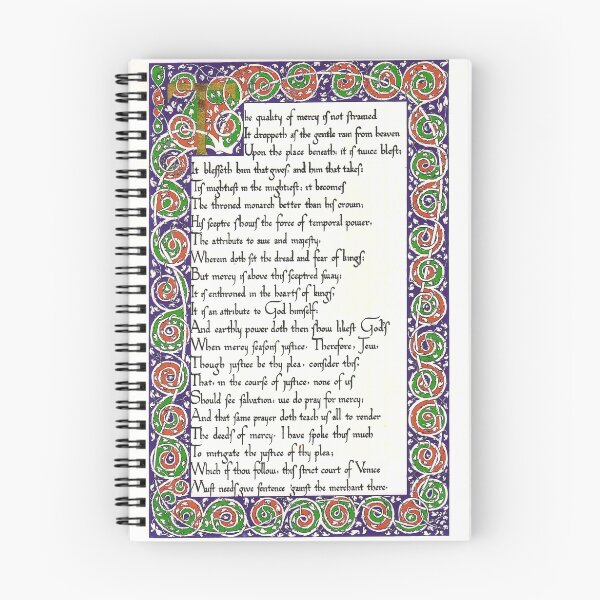 The quality of mercy is not strained
It droppeth as the gentle rain from heaven
Upon the place beneath: it is twice blest;
It blesseth him that gives, and him that takes;
Tis mightiest in the mightiest; it becomes
The throned monarch better than his crown;
His sceptre shows the force of temporal power,
The attribute to awe and majesty,
Wherein doth sit the dread and fear of kings;
But mercy is above this sceptred sway;
It is enthroned in the hearts of kings,
It is an attribute to God himself;
And earthly power doth then show likest God's
When mercy seasons justice. Therefore, Jew,
Though justice be thy plea, consider this,
That, in the course of justice, none of us
Should see salvation: we do pray for mercy;
And that same prayer doth teach us all to render
The deeds of mercy. I have spoke thus much
To mitigate the justice of thy plea;
Which if thou follow, this strict court of Venice
Must needs give sentence 'gainst the merchant there.